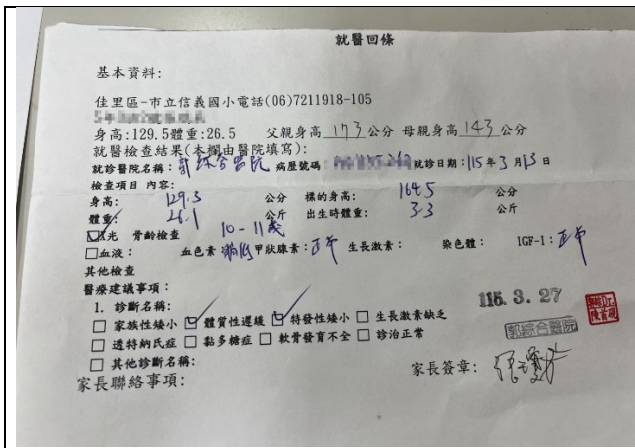 就醫回條
基本資料:
佳里區-市立信義國小電話(06)7211918-105
身高:129.5體重:26.5 父親身高 173 公分 母親身高 143 公分
就醫檢查結果(本欄由醫院填寫):
就診醫院名稱: 郭綜合醫院 病歷號碼: 就診日期: 115 年 3 月 13 日
檢查項目 內容:
身高: 129.3 公分 標的身高: 164.5 公分
體重: 26.1 公斤 出生時體重: 3.3 公斤
☑X光 骨齡檢查 10-11歲
□血液: 血色素 偏低 甲狀腺素: 正常 生長激素: 染色體: IGF-1: 正常
其他檢查
醫療建議事項:
1. 診斷名稱:
□ 家族性矮小 ☑ 體質性遲緩 ☑ 特發性矮小 □ 生長激素缺乏
□ 透特納氏症 □ 黏多糖症 □ 軟骨發育不全 □ 診治正常
□ 其他診斷名稱:
115. 3. 27
郭綜合醫院
家長聯絡事項: 家長簽章: